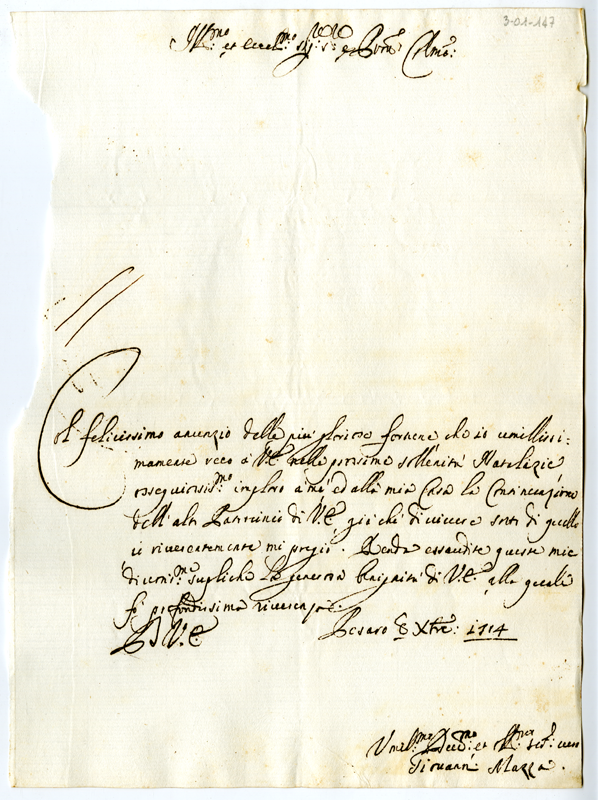 3-01-147
Ill.mo et Ecc.mo Sig.r e Pron Colmo:
Col felicissimo anunzio delle più gloriose fortune che io umilissi:
mamente reco à V.E. nelle prossime sollenità Natalizie
ossequiosis.mo imploro a me ed alla mia Casa la Continuazione
dell'alto Patrocinio di V.E. già chè di vivere sotto di quello
io riverentemente mi pregio. Renda essaudite queste mie
suppliche la generosa benignità di V.E. alla quale
fò profondissima riverenza.
D V.E. Pesaro 8 Xbre: 1714
Umil.mo Dev.mo et Obl.mo
Giovanni Mazza.